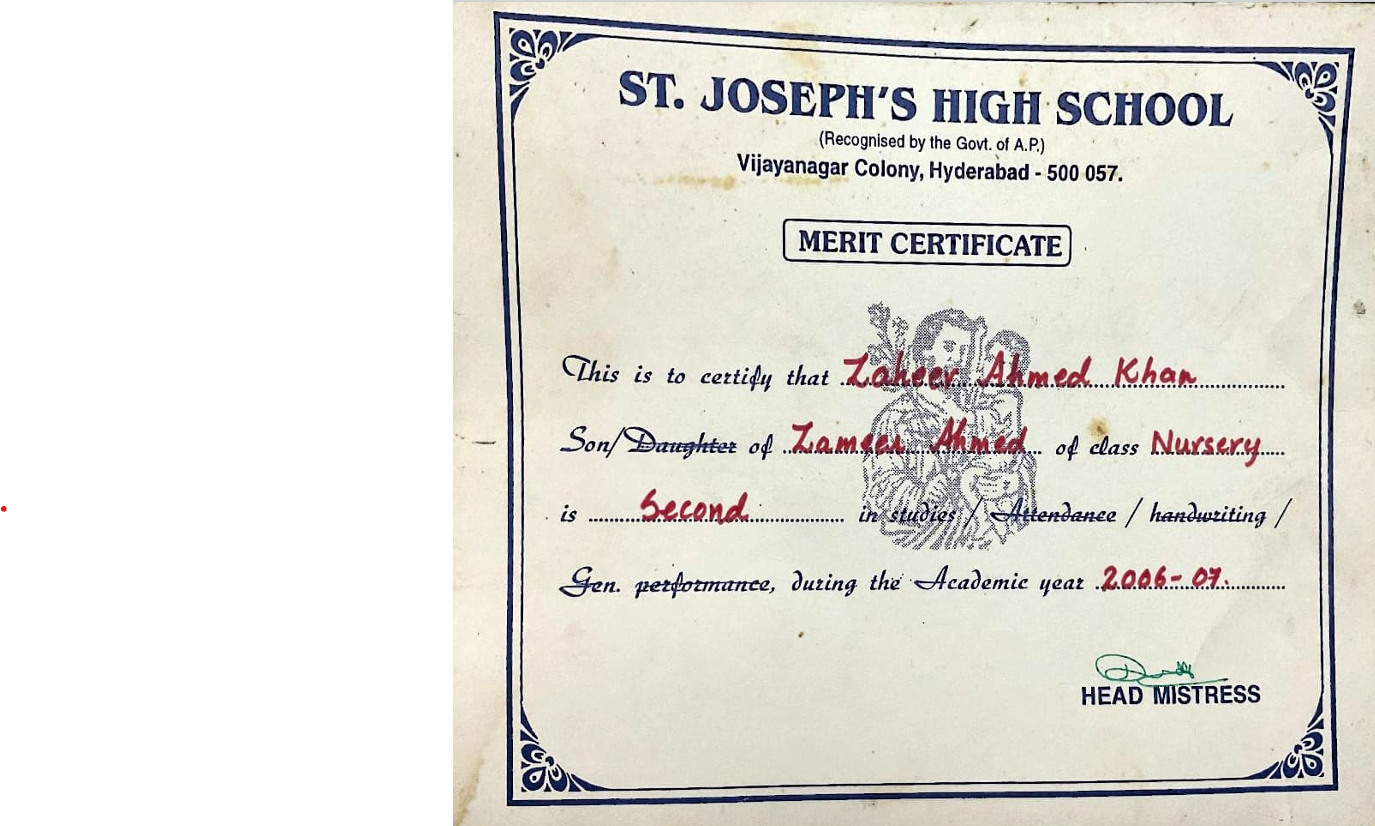 ST. JOSEPH'S HIGH SCHOOL
(Recognised by the Govt. of A.P.)
Vijayanagar Colony, Hyderabad - 500 057.
MERIT CERTIFICATE
This is to certify that Zaheer Ahmed Khan
Son/ Daughter of Zameer Ahmed of class Nursery
is Second in studies / Attendance / handwriting /
Gen. performance, during the Academic year 2006-07.
HEAD MISTRESS